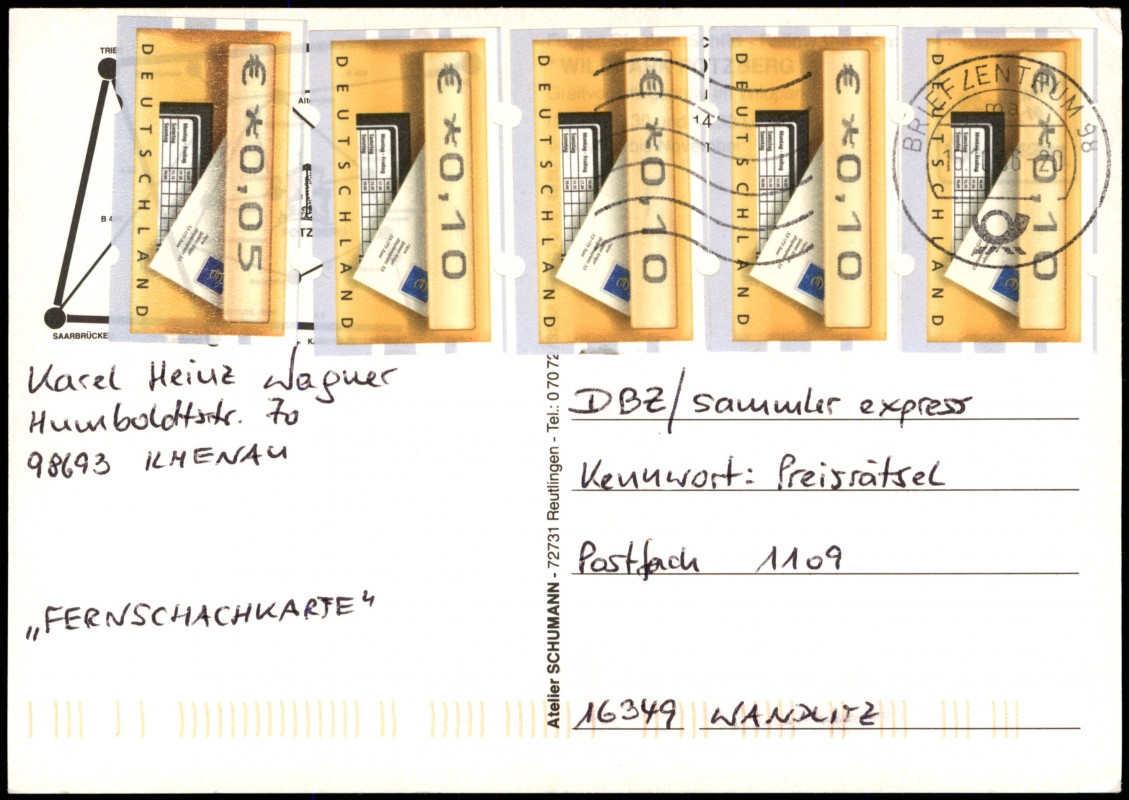 TRIE
B 4
SAARBRÜCKE
DEUTSCHLAND
€ *0,05
DEUTSCHLAND
€ *0,10
DEUTSCHLAND
€ *0,10
DEUTSCHLAND
€ *0,10
DEUTSCHLAND
€ *0,10
BRIEFZENTRUM 98
Karel Heinz Wagner
Humboldtstr. 70
98693 ILMENAU
„FERNSCHACHKARTE“
Atelier SCHUMANN - 72731 Reutlingen - Tel.: 0 70 72
DBZ/sammler express
Kennwort: Preisrätsel
Postfach 1109
16349 WANDLITZ